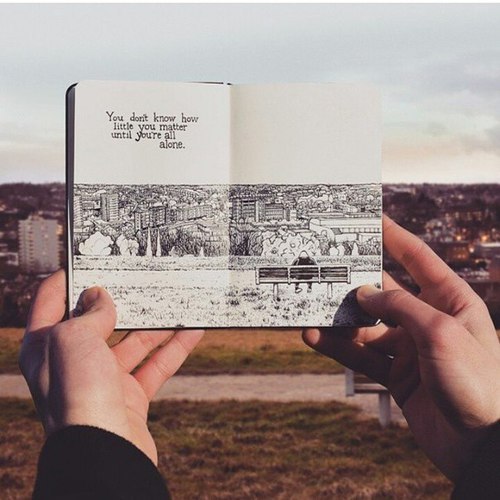 You don't know how
little you matter
until you're all
alone.